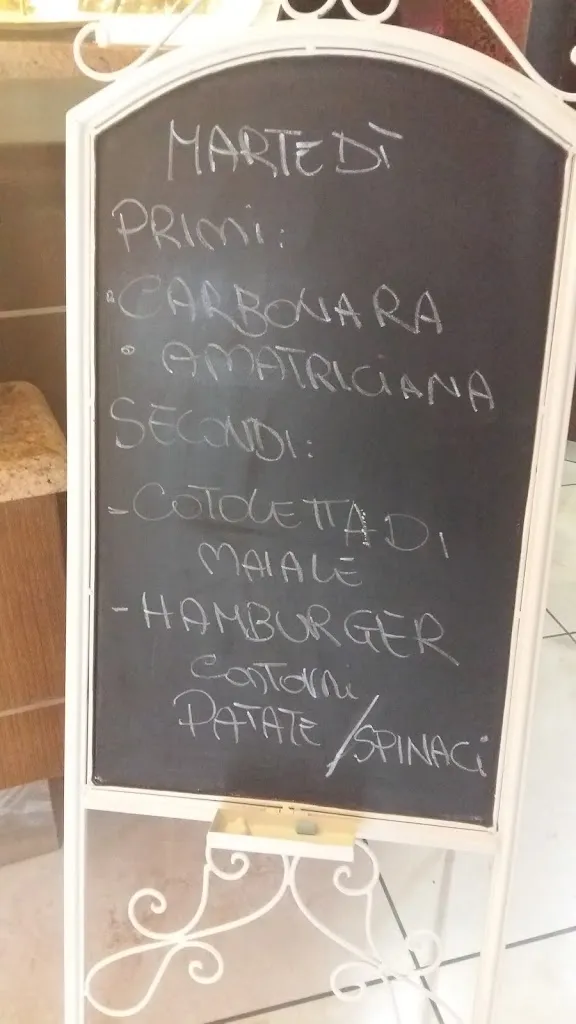 MARTEDÌ
PRIMI:
• CARBONARA
• AMATRICIANA
SECONDI:
- COTOLETTA DI
MAIALE
- HAMBURGER
Contorni
PATATE / SPINACI